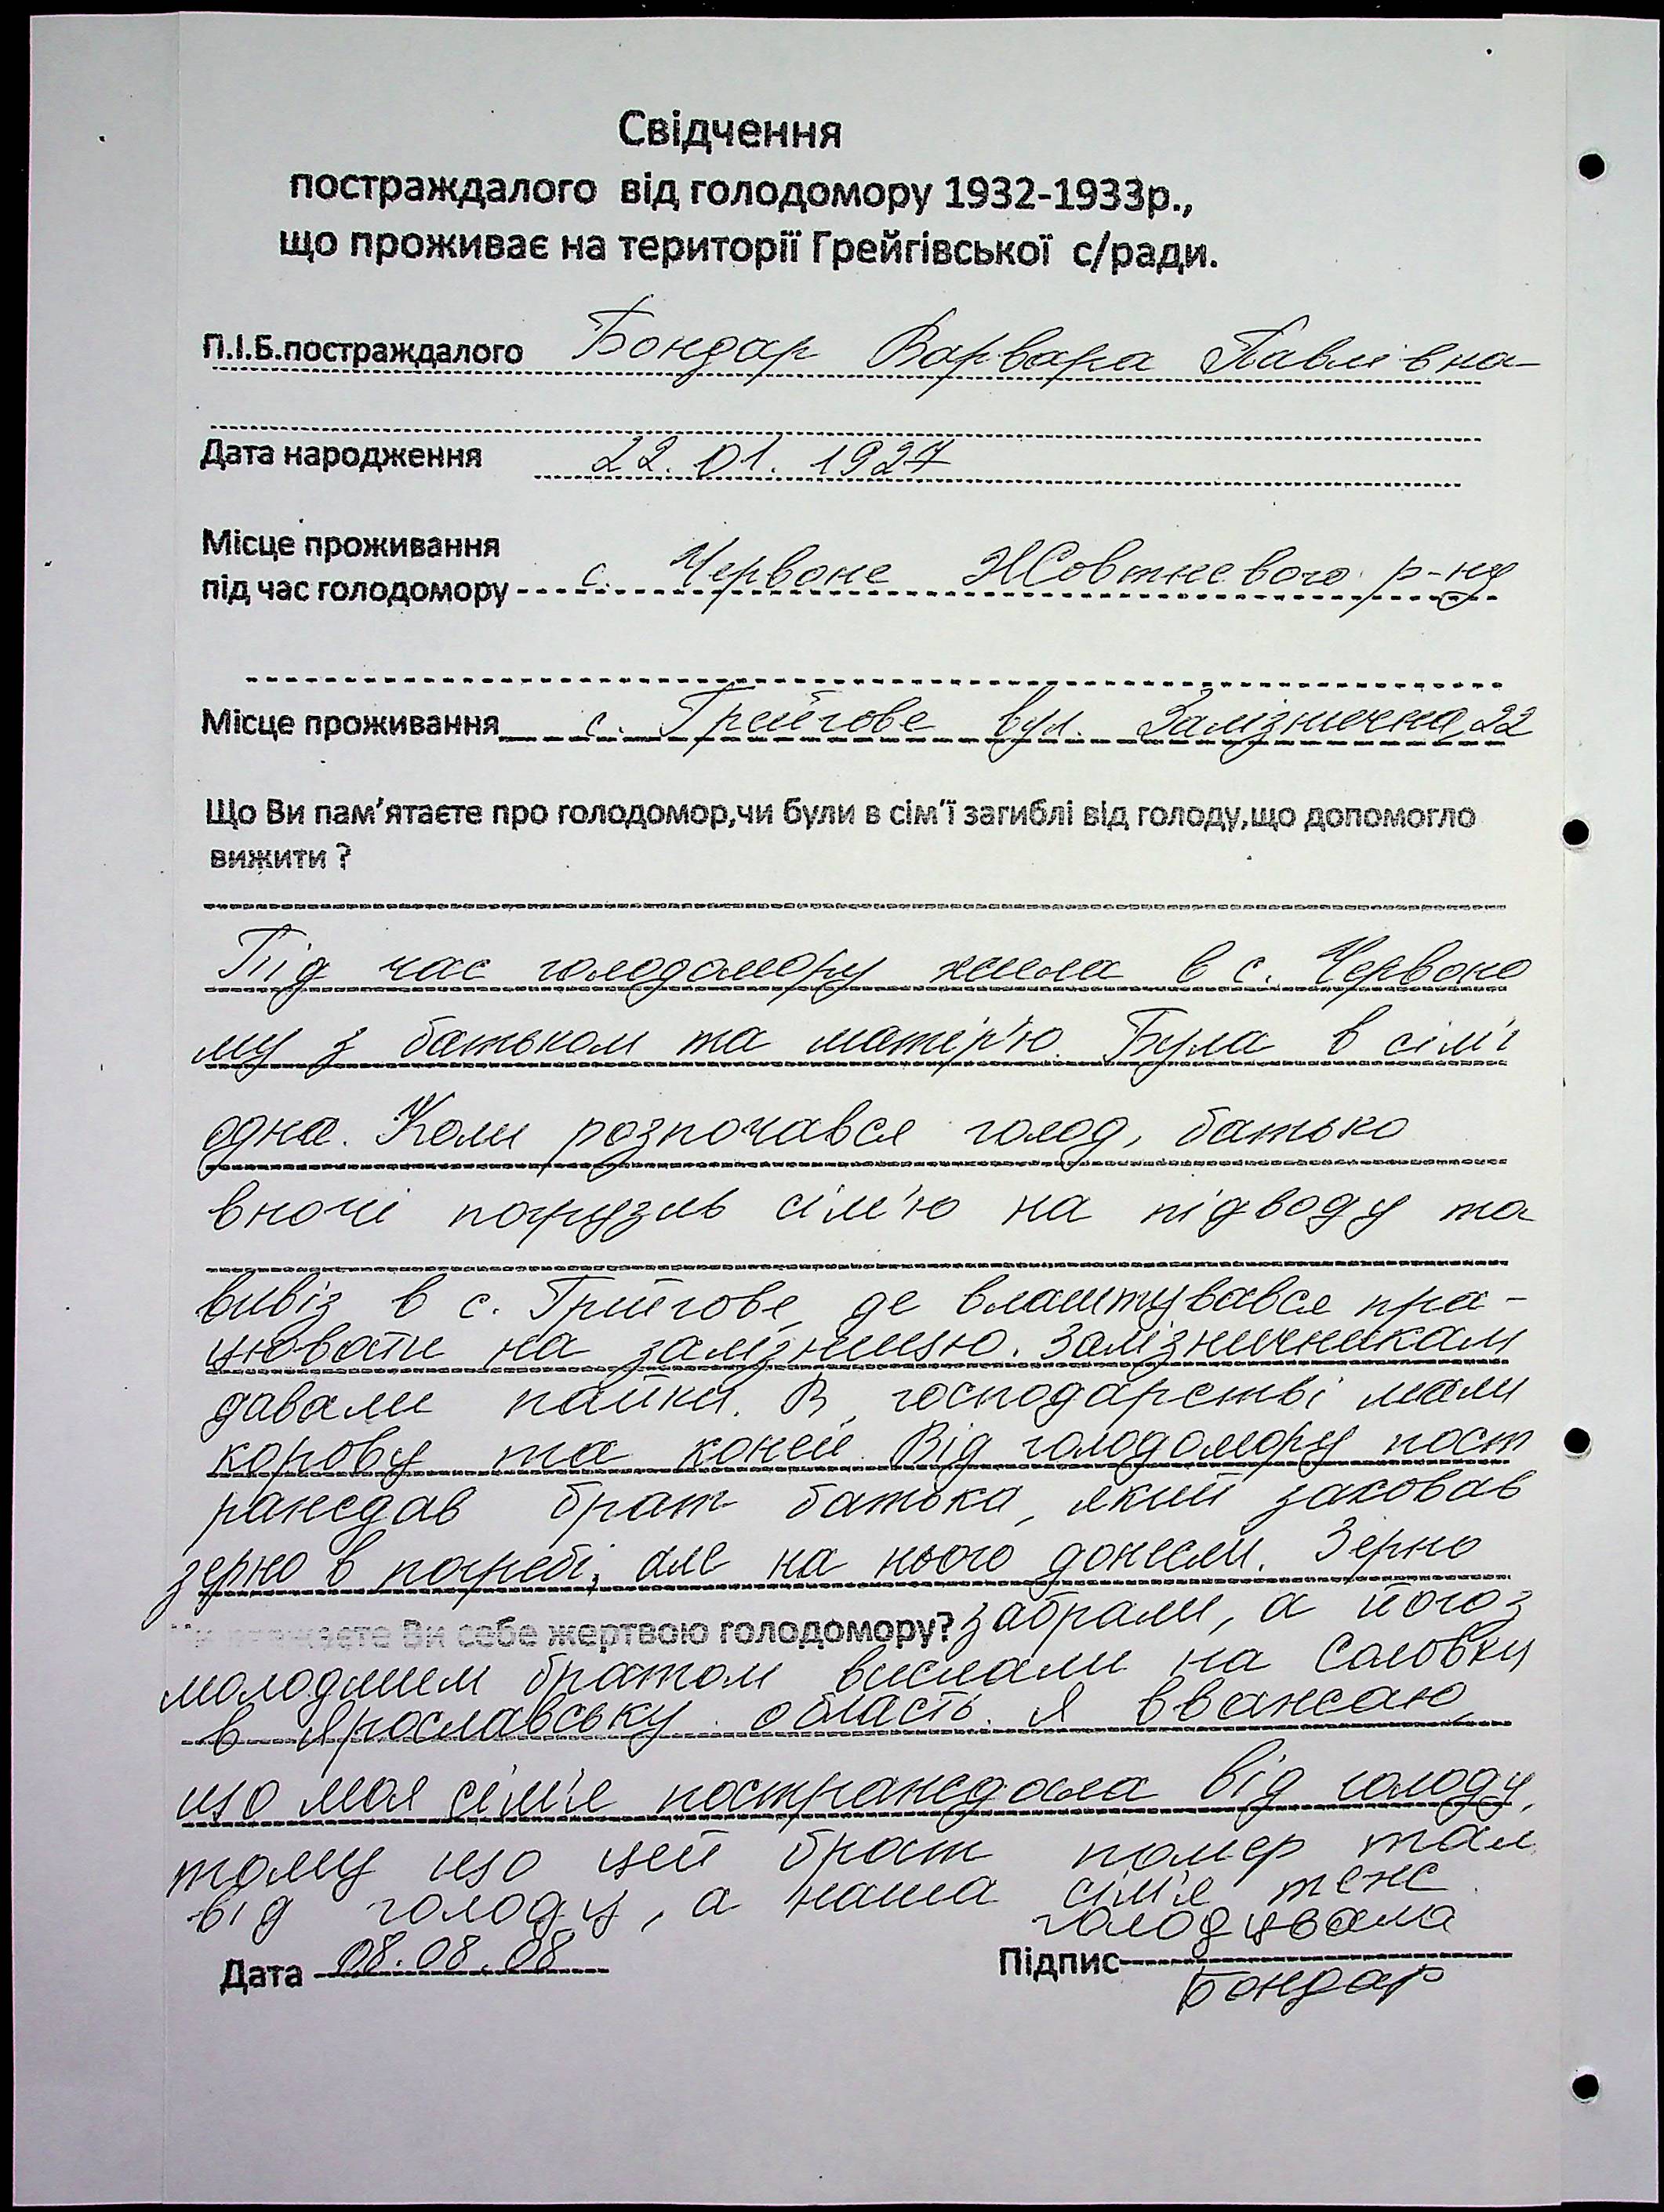 Свідчення
постраждалого від голодомору 1932-1933р.,
що проживає на території Грейгівської с/ради.
П.І.Б.постраждалого Бондар Варвара Павлівна
Дата народження 22.01.1927
Місце проживання
під час голодомору с. Червоне Жовтневого р-ну
Місце проживання с. Грейгове вул. Залізнична, 22
Що Ви пам'ятаєте про голодомор,чи були в сім'ї загиблі від голоду,що допомогло
вижити ?
Під час голодомору жила в с. Червоно
му з батьком та матір'ю. Була в сім'ї
одна. Коли розпочався голод, батько
вночі погрузив сім'ю на підводу та
вивіз в с. Грейгове, де влаштувався пра-
цювати на залізницю. Залізничникам
давали пайки. В господарстві мали
корову та коней. Від голодомору пост
раждав брат батька, який заховав
зерно в погребі, але на нього донесли. Зерно
Чи вважаєте Ви себе жертвою голодомору? забрали, а його з
молодшим братом вислали на Соловки
в Ярославську область. Я вважаю,
що моя сім'я постраждала від голоду,
тому що цей брат помер там
від голоду, а наша сім'я теж
голодувала
Дата 08.08.08 Підпис
Бондар